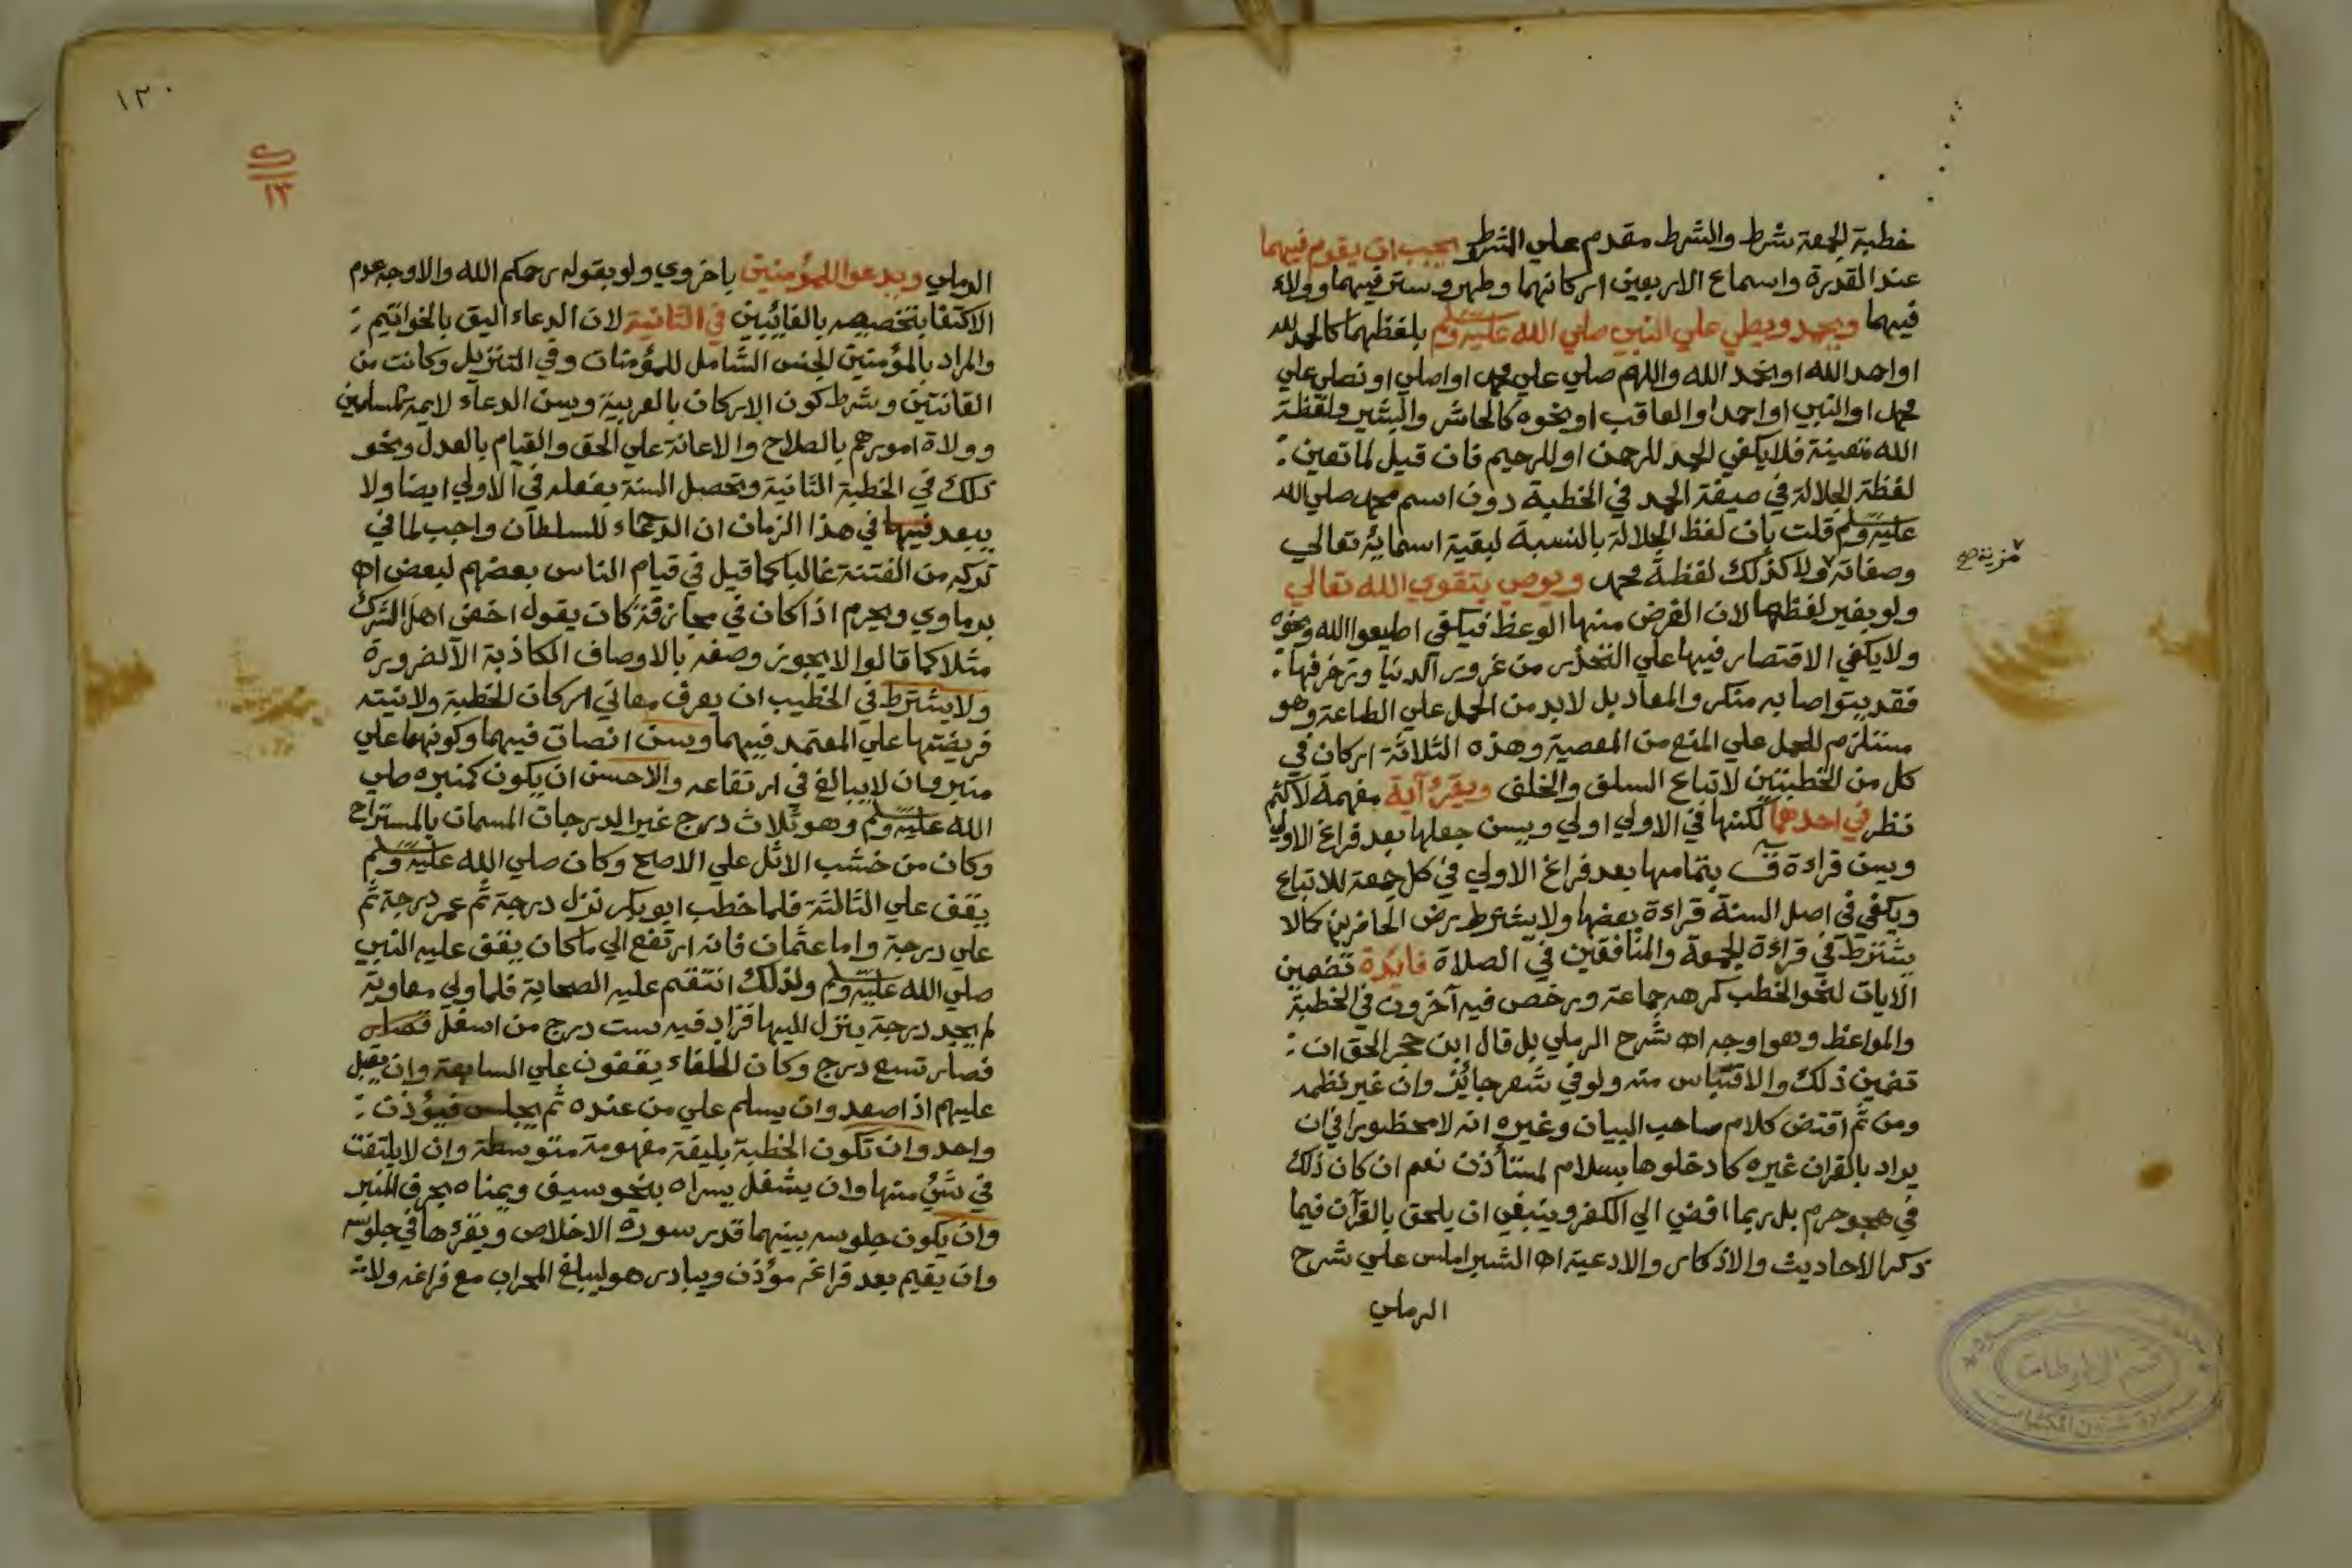 خطبة الجمعة شرط والشرط مقدم علي الشرط ويجب ان يقوم فيهما
عند القدرة واسماع الاربعين اركانهما وطهر وستر فيهما وولاء
فيهما ويحمد ويصلي علي النبي صلي الله عليه وسلم بلفظهما كالحمد لله
او احمد الله او نحمد الله واللهم صلي علي محمد او اصلي او نصلي علي
محمد او النبي او احمد او العاقب او نحوه كالحاشر والبشير ولفظة
الله متعينة فلا يكفي الحمد للرحمن او للرحيم فان قيل لما تعين :
لفظة الجلالة في صيغة الحمد في الخطبة دون اسم محمد صلي الله
عليه وسلم قلت بان لفظ الجلالة بالنسبة لبقية اسمائه تعالي
مزية صح
وصفاته ولا كذلك لفظة محمد ويوصي بتقوي الله تعالي
ولو بغير لفظهما لان الغرض منها الوعظ فيكفي اطيعوا الله ونحوه
ولا يكفي الاقتصار فيها علي التحذر من غرور الدنيا وزخرفها .
فقد يتواصا به منكر والمعاد بل لابد من الحمل علي الطاعة وهو
مستلزم للحمل علي المنع من المعصية وهذه الثلاثة اركان في
كل من الخطبتين لاتباع السلف والخلف ويقرء آية مفهمة لا كثم
نظر في احدهما لكنها في الاولي اولي ويسن جعلها بعد فراغ الاولي
ويسن قراءة ق بتمامها بعد فراغ الاولي في كل جمعة للاتباع
ويكفي في اصل السنة قراءة بعضها ولا يشترط رضي الحاضرين كما لا
يشترط في قراءة الجمعة والمنافقين في الصلاة فايدة تضمين
الايات لنحو الخطب كرهه جماعة ورخص فيه آخرون في الخطبة
والمواعظ وهو اوجه اه شرح الرملي بل قال ابن حجر الحق ان :
تضمين ذلك والاقتباس منه ولو في شعر جائز وان غير نظمه
ومن ثم اقتضي كلام صاحب البيان وغيره انه لا محظور في ان
يراد بالقران غيره كادخلوها بسلام لمستأذن نعم ان كان ذلك
في هجو حرم بل ربما افضي الي الكفر وينبغي ان يلحق بالقرآن فيما
ذكر الاحاديث والاذكار والادعية اه الشبراملس علي شرح
الرملي
١٢٠
١٣
الرملي ويدعوا للمؤمنين باخروي ولو بقوله رحمكم الله والاوجه عدم
الاكتفا بتخصيصه بالغائبين في الثانية لان الدعاء اليق بالخواتيم :
والمراد بالمؤمنين الجنس الشامل للمؤمنات وفي التنزيل وكانت من
القانتين وشرط كون الاركان بالعربية ويسن الدعاء لايمة المسلمين
وولاة امورهم بالصلاح والاعانة علي الحق والقيام بالعدل ونحو
ذلك في الخطبة الثانية وتحصل السنة بفعله في الاولي ايضا ولا
يبعد فيها في هذا الزمان ان الدعاء للسلطان واجب لما في
تركه من الفتنة غالبا كما قيل في قيام الناس بعضهم لبعض اه
برماوي ويحرم اذا كان في مجازفة كان يقول اخفي اهل الشرك
مثلا كما قالوا لا يجوز وصفه بالاوصاف الكاذبة الا لضرورة
ولا يشترط في الخطيب ان يعرف معاني اركان الخطبة ولا نيته
فريضتها علي المعتمد فيهما ويسن انصات فيهما وكونهما علي
منبر وان لا يبالغ في ارتفاعه والاحسن ان يكون كمنبره صلي
الله عليه وسلم وهو ثلاث درج غير الدرجات المسمات بالمستراح
وكان من خشب الاثل علي الاصح وكان صلي الله عليه وسلم
يقف علي الثالثة فلما خطب ابو بكر نزل درجة ثم عمر درجة ثم
علي درجة واما عثمان فانه ارتفع الي ما كان يقف عليه النبي
صلي الله عليه وسلم ولذلك انتقم عليه الصحابة فلما ولي معاوية
لم يجد درجة ينزل اليها فزاد فيه ست درج من اسفل فصار
فصار تسع درج وكان الخلفاء يقفون علي السابعة وان يقبل
عليهم اذا صعد وان يسلم علي من عنده ثم يجلس فيؤذن :
واحد وان تكون الخطبة بليغة مفهومة متوسطة وان لا يلتفت
في شئ منها وان يشغل يسراه بنحو سيف ويمناه بحرف المنبر
وان يكون جلوسه بينهما قدر سورة الاخلاص ويقرءها في جلوسه
وان يقيم بعد فراغه مؤذن ويبادر هو ليبلغ المحراب مع فراغه ولانه